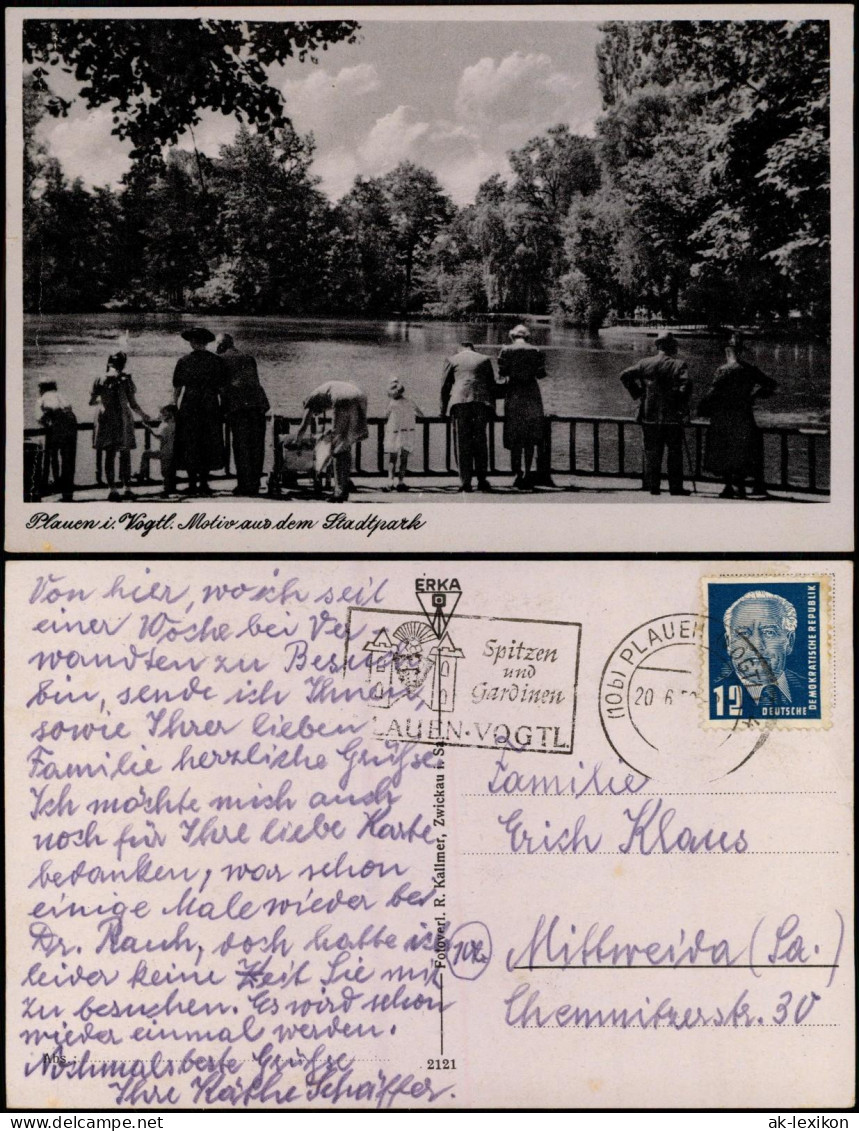 Plauen i. Vogtl. Motiv aus dem Stadtpark
Von hier, wo ich seit
einer Woche bei Ver
wandten zu Besuch
bin, sende ich Ihnen
sowie Ihrer lieben
Familie herzliche Grüße.
Ich möchte mich auch
noch für Ihre liebe Karte
bedanken, war schon
einige Male wieder bei
Dr. Rauh, doch hatte ich
leider keine Zeit Sie mit
zu besuchen. Es wird schon
wieder einmal werden.
Abs.:
Nochmals beste Grüße
Ihre Käthe Schäffer.
ERKA
Spitzen
und
Gardinen
PLAUEN·VOGTL
(10b) PLAUEN (VOGTL)
20.6.5
12
DEUTSCHE
DEMOKRATISCHE REPUBLIK
Fotoverl. R. Kallmer, Zwickau i. Sa.
2121
Familie
Erich Klaus
Mittweida (Sa.)
Chemnitzerstr. 30
ak-lexikon